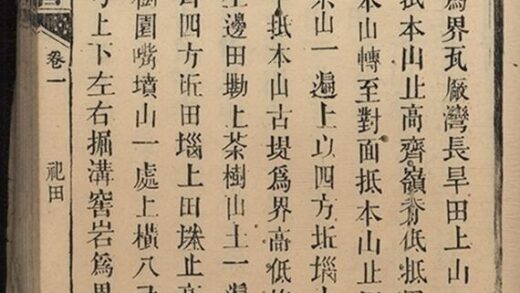 爲界瓦厰灣長旱田上山
抵本山止高齊嶺脊低抵
本山轉至對面抵本山止
茶山一遍上以四方坵堖
抵本山古堤爲界高低
上邊田墈上茶樹山土一遍
四方坵田堖上田止
樹園嘴墳山一處上橫八
上下左右掘溝窖岩爲界
卷一
祀田